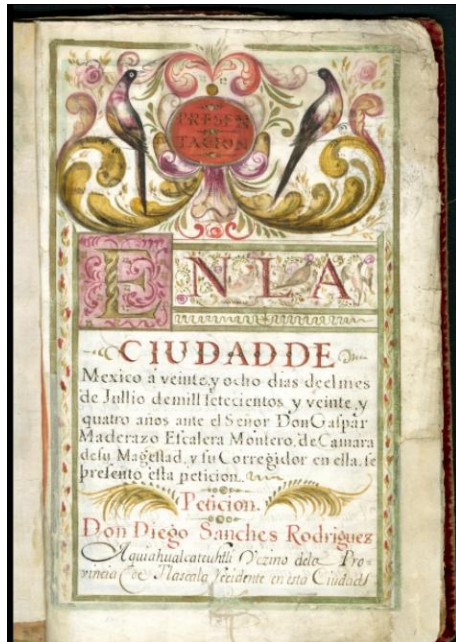 PRESEN
TACION
EN LA
CIUDAD DE
Mexico à veinte, y ocho dias de el mes
de Jullio de mill setecientos y veinte y
quatro años ante el Señor Don Gaspar
Maderazo Escalera Montero, de Camara
de su Magestad, y su Corregidor en ella, se
presento esta peticion.
Peticion.
Don Diego Sanches Rodriguez
Aquiahualcateuhtli Vezino dela Pro-
vincia de Tlascala, recidente en esta Ciudad